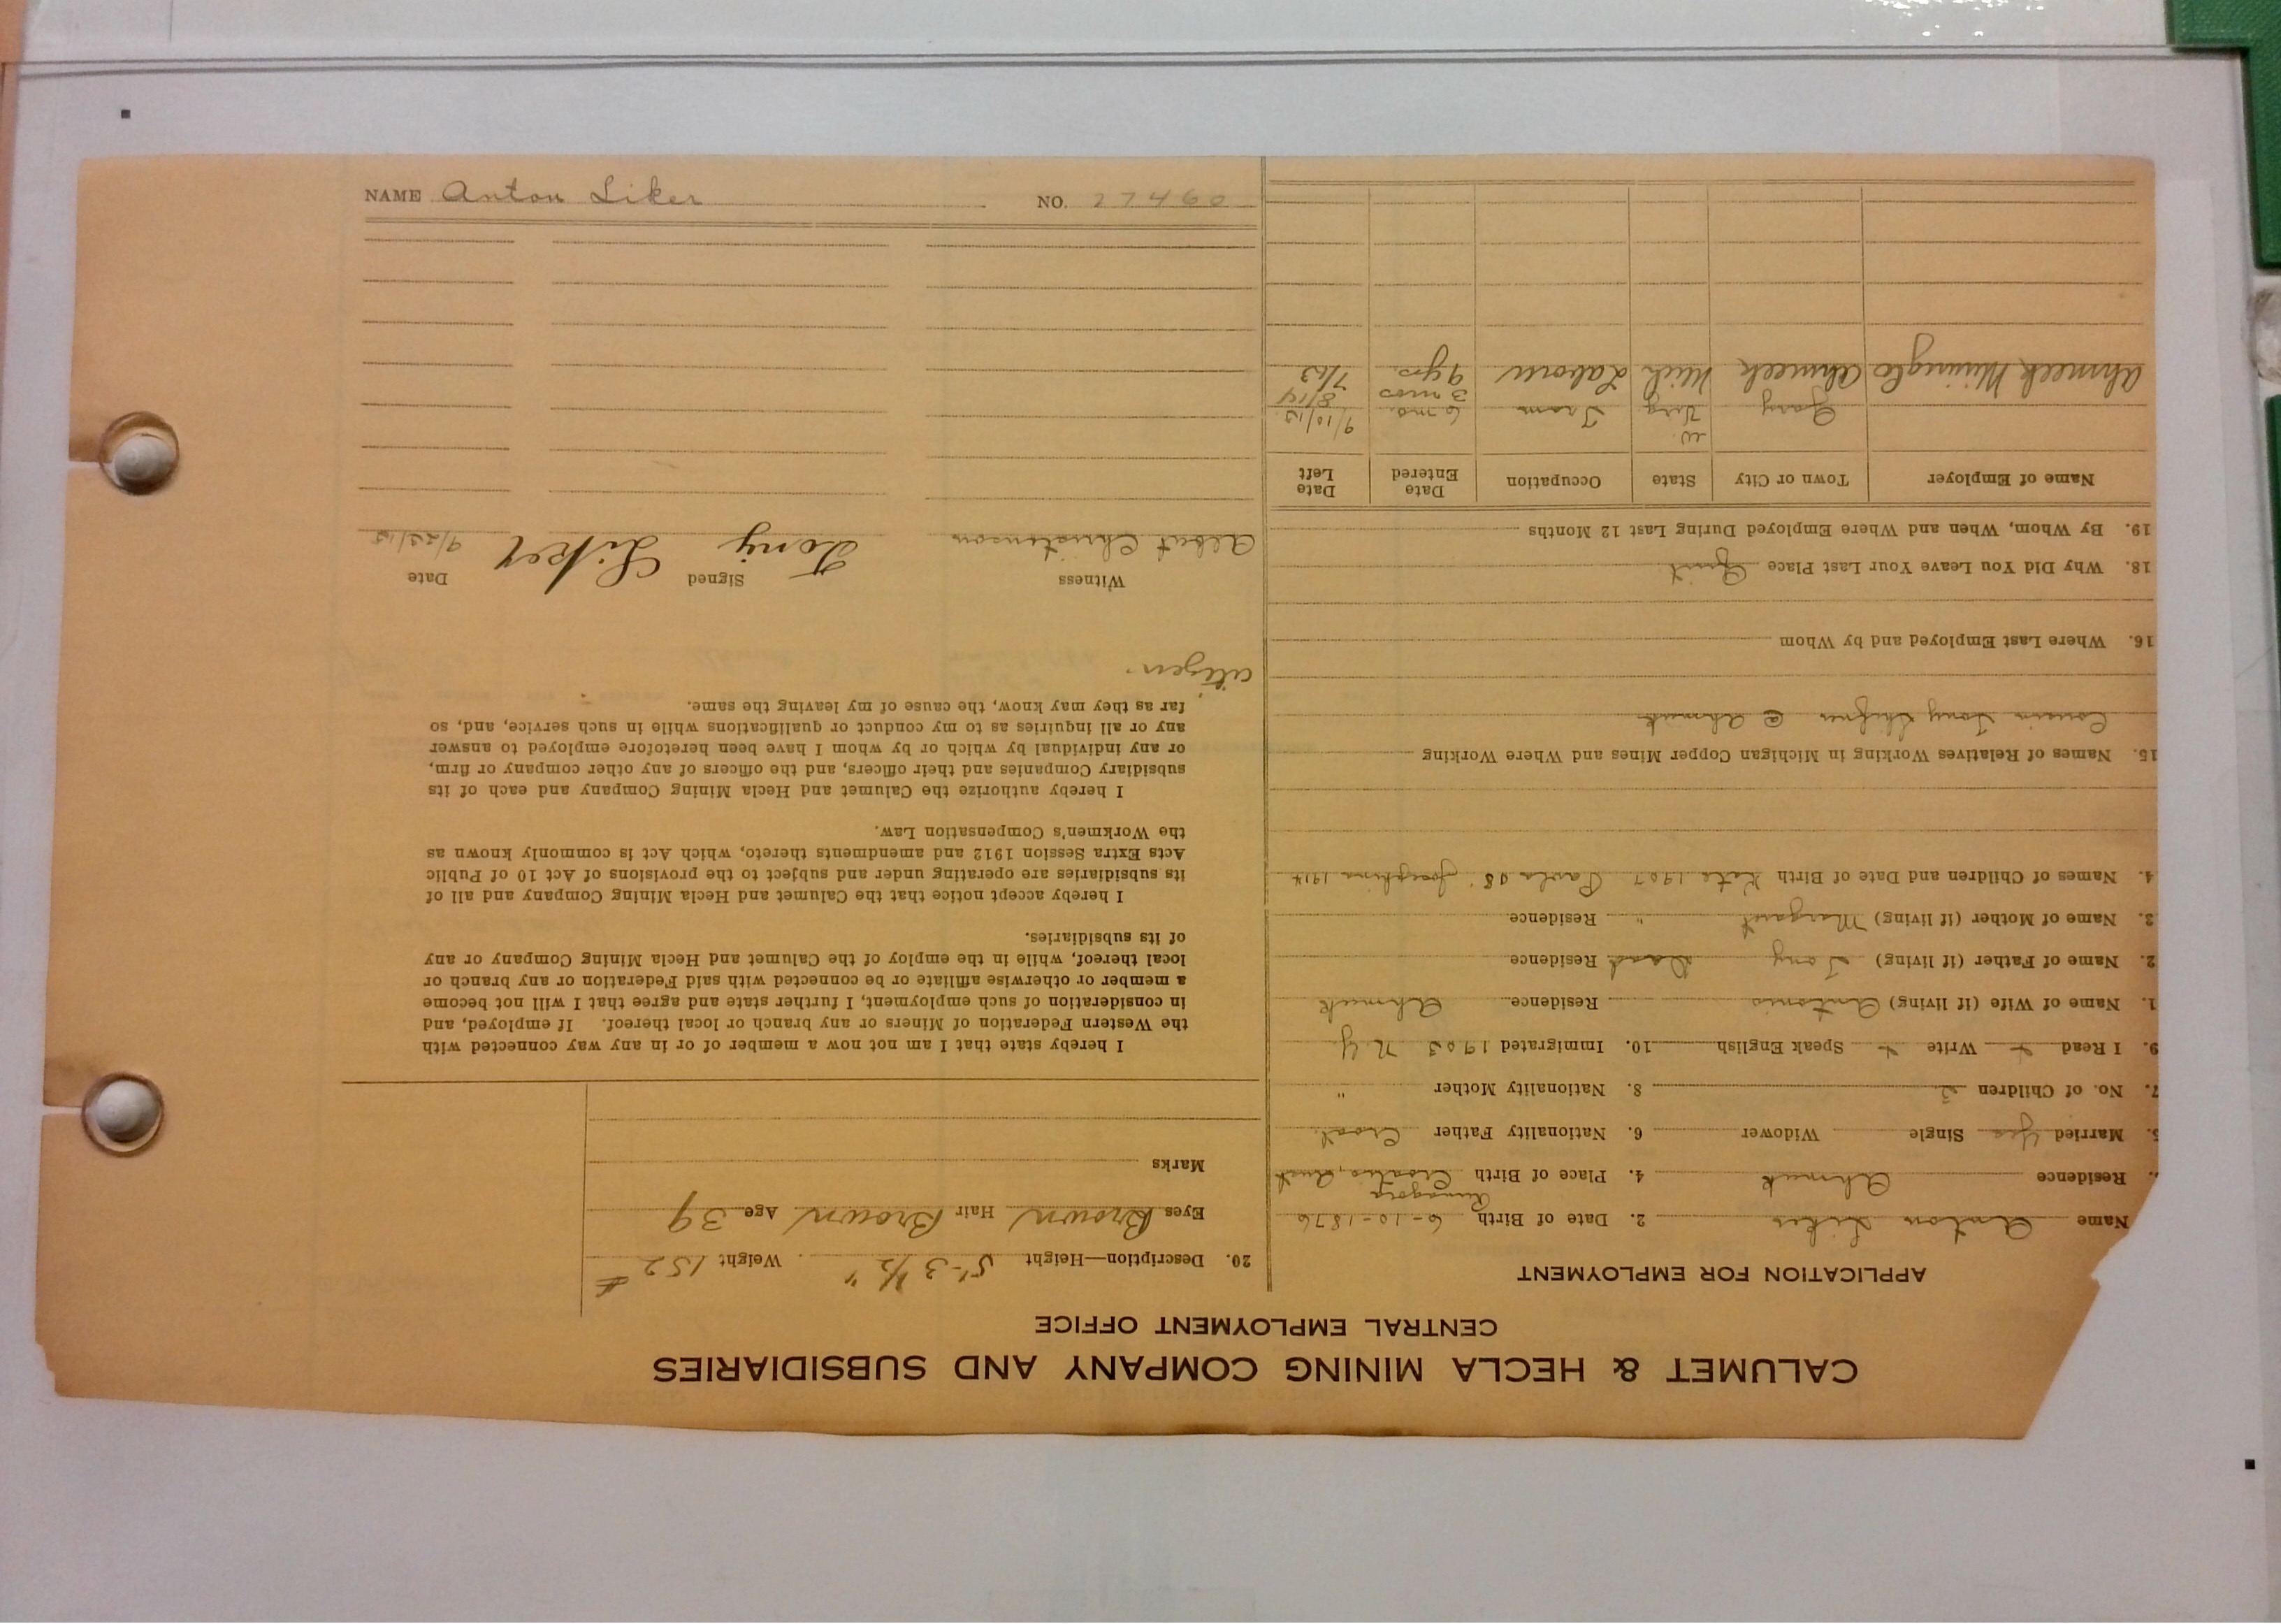 CALUMET & HECLA MINING COMPANY AND SUBSIDIARIES
CENTRAL EMPLOYMENT OFFICE
APPLICATION FOR EMPLOYMENT
Name Anton Liker 2. Date of Birth 6-10-1876
Residence Ahmeek 4. Place of Birth Croatia, Aust
5. Married Yes Single Widower 6. Nationality Father Croat.
7. No. of Children 3 8. Nationality Mother "
9. I Read Write Speak English 10. Immigrated 1903 N.Y.
1. Name of Wife (if living) Antonia Residence Ahmeek
2. Name of Father (if living) Tony Dead Residence
3. Name of Mother (if living) Margaret " Residence
4. Names of Children and Date of Birth Kate 1907 Paula 08 Josephina 1914
15. Names of Relatives Working in Michigan Copper Mines and Where Working
Cousin Tony @ Ahmeek
16. Where Last Employed and by Whom
18. Why Did You Leave Your Last Place Quit.
19. By Whom, When and Where Employed During Last 12 Months
Name of Employer Town or City State Occupation Date Entered Date Left
Gary W. Virg Tram 6 mo. 9/10/15
3 mos 8/14
Ahmeek Mining Co Ahmeek Mich Laborer 9 yrs. 7/13
20. Description—Height 5'-3 1/2" Weight 152 #
Eyes Brown Hair Brown Age 39
Marks
I hereby state that I am not now a member of or in any way connected with
the Western Federation of Miners or any branch or local thereof. If employed, and
in consideration of such employment, I further state and agree that I will not become
a member or otherwise affiliate or be connected with said Federation or any branch or
local thereof, while in the employ of the Calumet and Hecla Mining Company or any
of its subsidiaries.
I hereby accept notice that the Calumet and Hecla Mining Company and all of
its subsidiaries are operating under and subject to the provisions of Act 10 of Public
Acts Extra Session 1912 and amendments thereto, which Act is commonly known as
the Workmen's Compensation Law.
I hereby authorize the Calumet and Hecla Mining Company and each of its
subsidiary Companies and their officers, and the officers of any other company or firm,
or any individual by which or by whom I have been heretofore employed to answer
any or all inquiries as to my conduct or qualifications while in such service, and, so
far as they may know, the cause of my leaving the same.
citizen.
Witness Signed Date
Albert Christenson Tony Liker 9/23/15
NAME Anton Liker NO. 27460